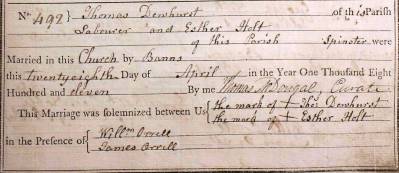 No. 492 } Thomas Dewhurst of this Parish
Labourer and Esther Holt
of this Parish Spinster were
Married in this Church by Banns
this twentyeighth Day of April in the Year One Thousand Eight
Hundred and eleven By me Thomas McDougal, Curate
This Marriage was solemnized between Us { the mark of + Thos Dewhurst
the mark of + Esther Holt
in the Presence of { Willm Orrell
James Orrell